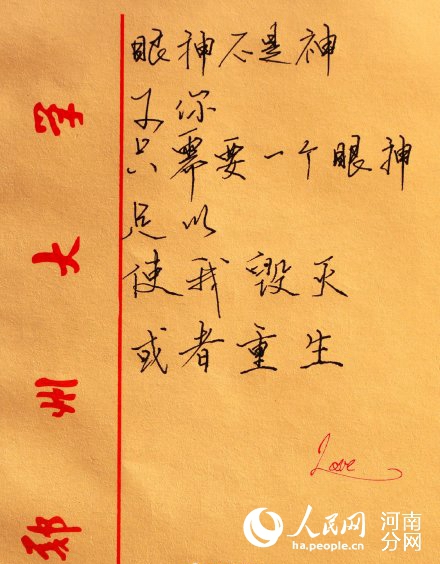 眼神不是神
你
只需要一个眼神
足以
使我毁灭
或者重生
Love
郑州大学
人民网 河南分网
ha.people.cn